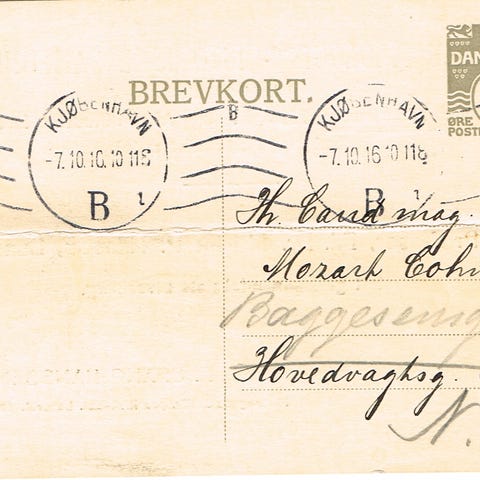 BREVKORT.
DAN
ØRE
POST
KJØBENHAVN
B
KJØBENHAVN
-7.10.16.10 11 S
-7.10.16 10 11
B 1
B 1
Hr. Cand mag.
Mozart Cohn
Baggeseng
Hovedvagtsg.
N.